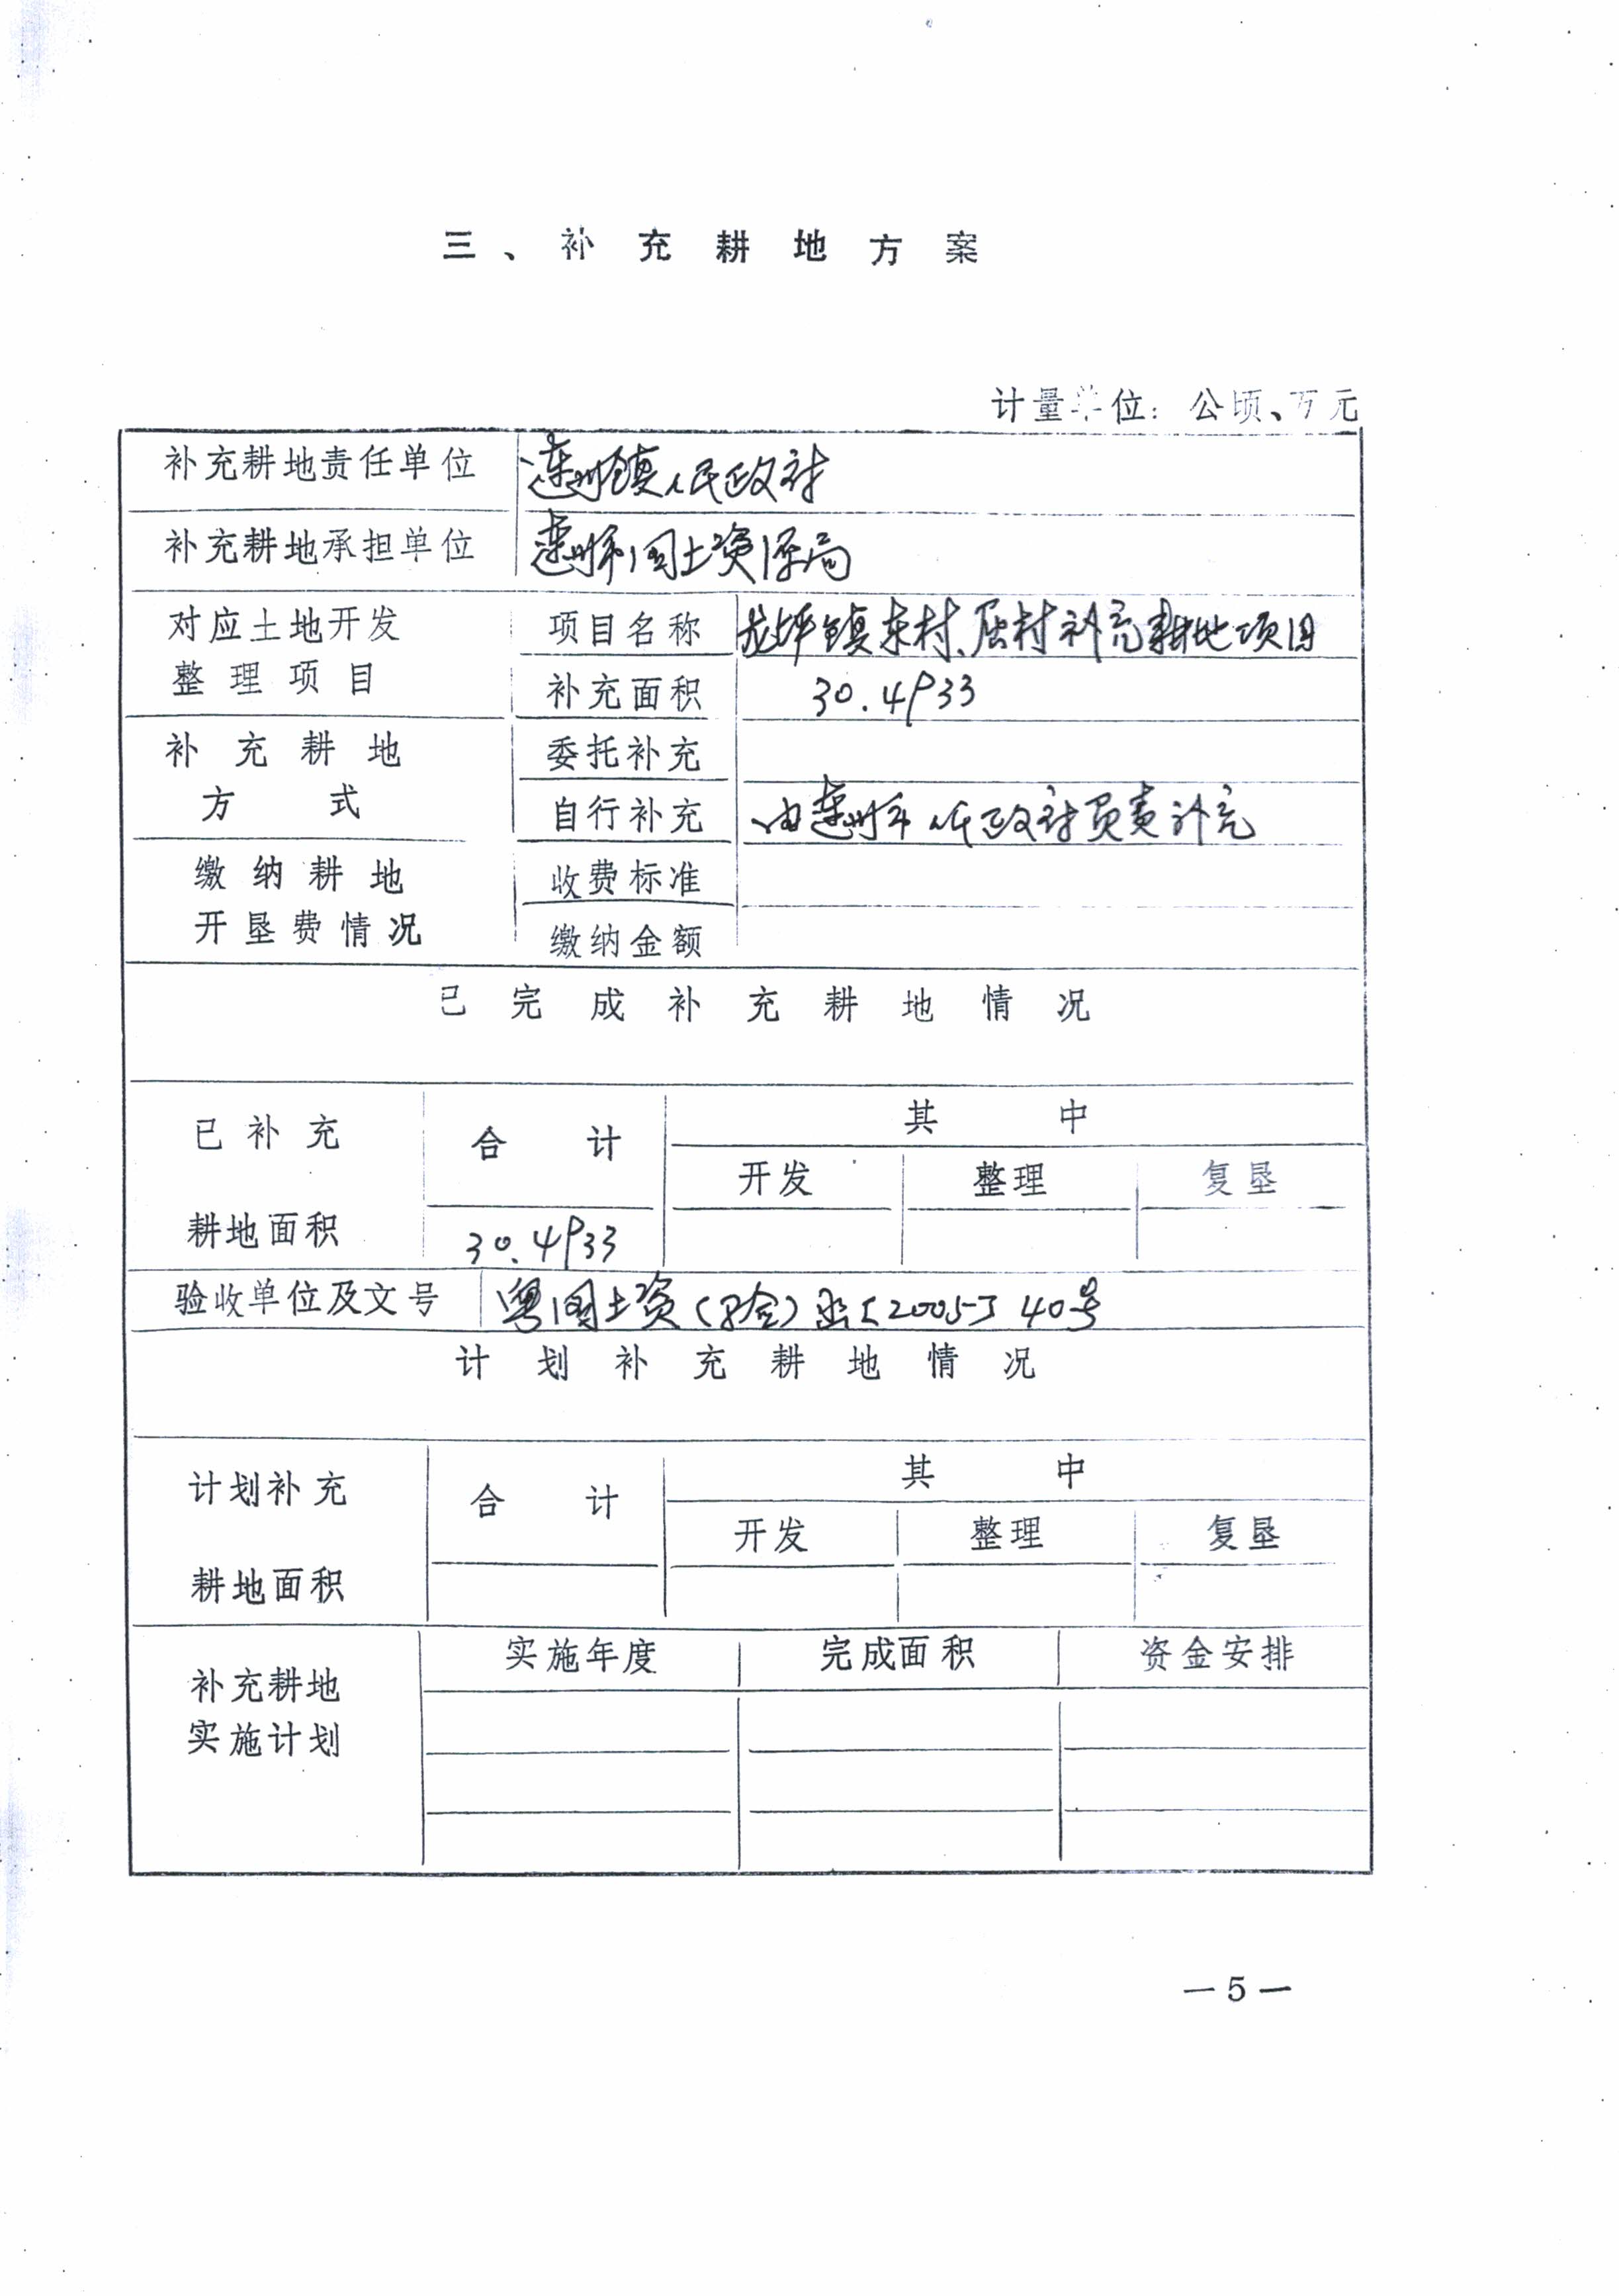 三、补充耕地方案
计量单位：公顷、万元
补充耕地责任单位 连州镇人民政府
补充耕地承担单位 连州市国土资源局
对应土地开发整理项目 项目名称 龙坪镇东村、屈村补充耕地项目
补充面积 30.4933
补充耕地方式 委托补充
自行补充 由连州市人民政府负责补充
缴纳耕地开垦费情况 收费标准
缴纳金额
已完成补充耕地情况
已补充耕地面积 合计 其中
开发 整理 复垦
30.4933
验收单位及文号 粤国土资（验）函[2005]40号
计划补充耕地情况
计划补充耕地面积 合计 其中
开发 整理 复垦
补充耕地实施计划 实施年度 完成面积 资金安排
—5—